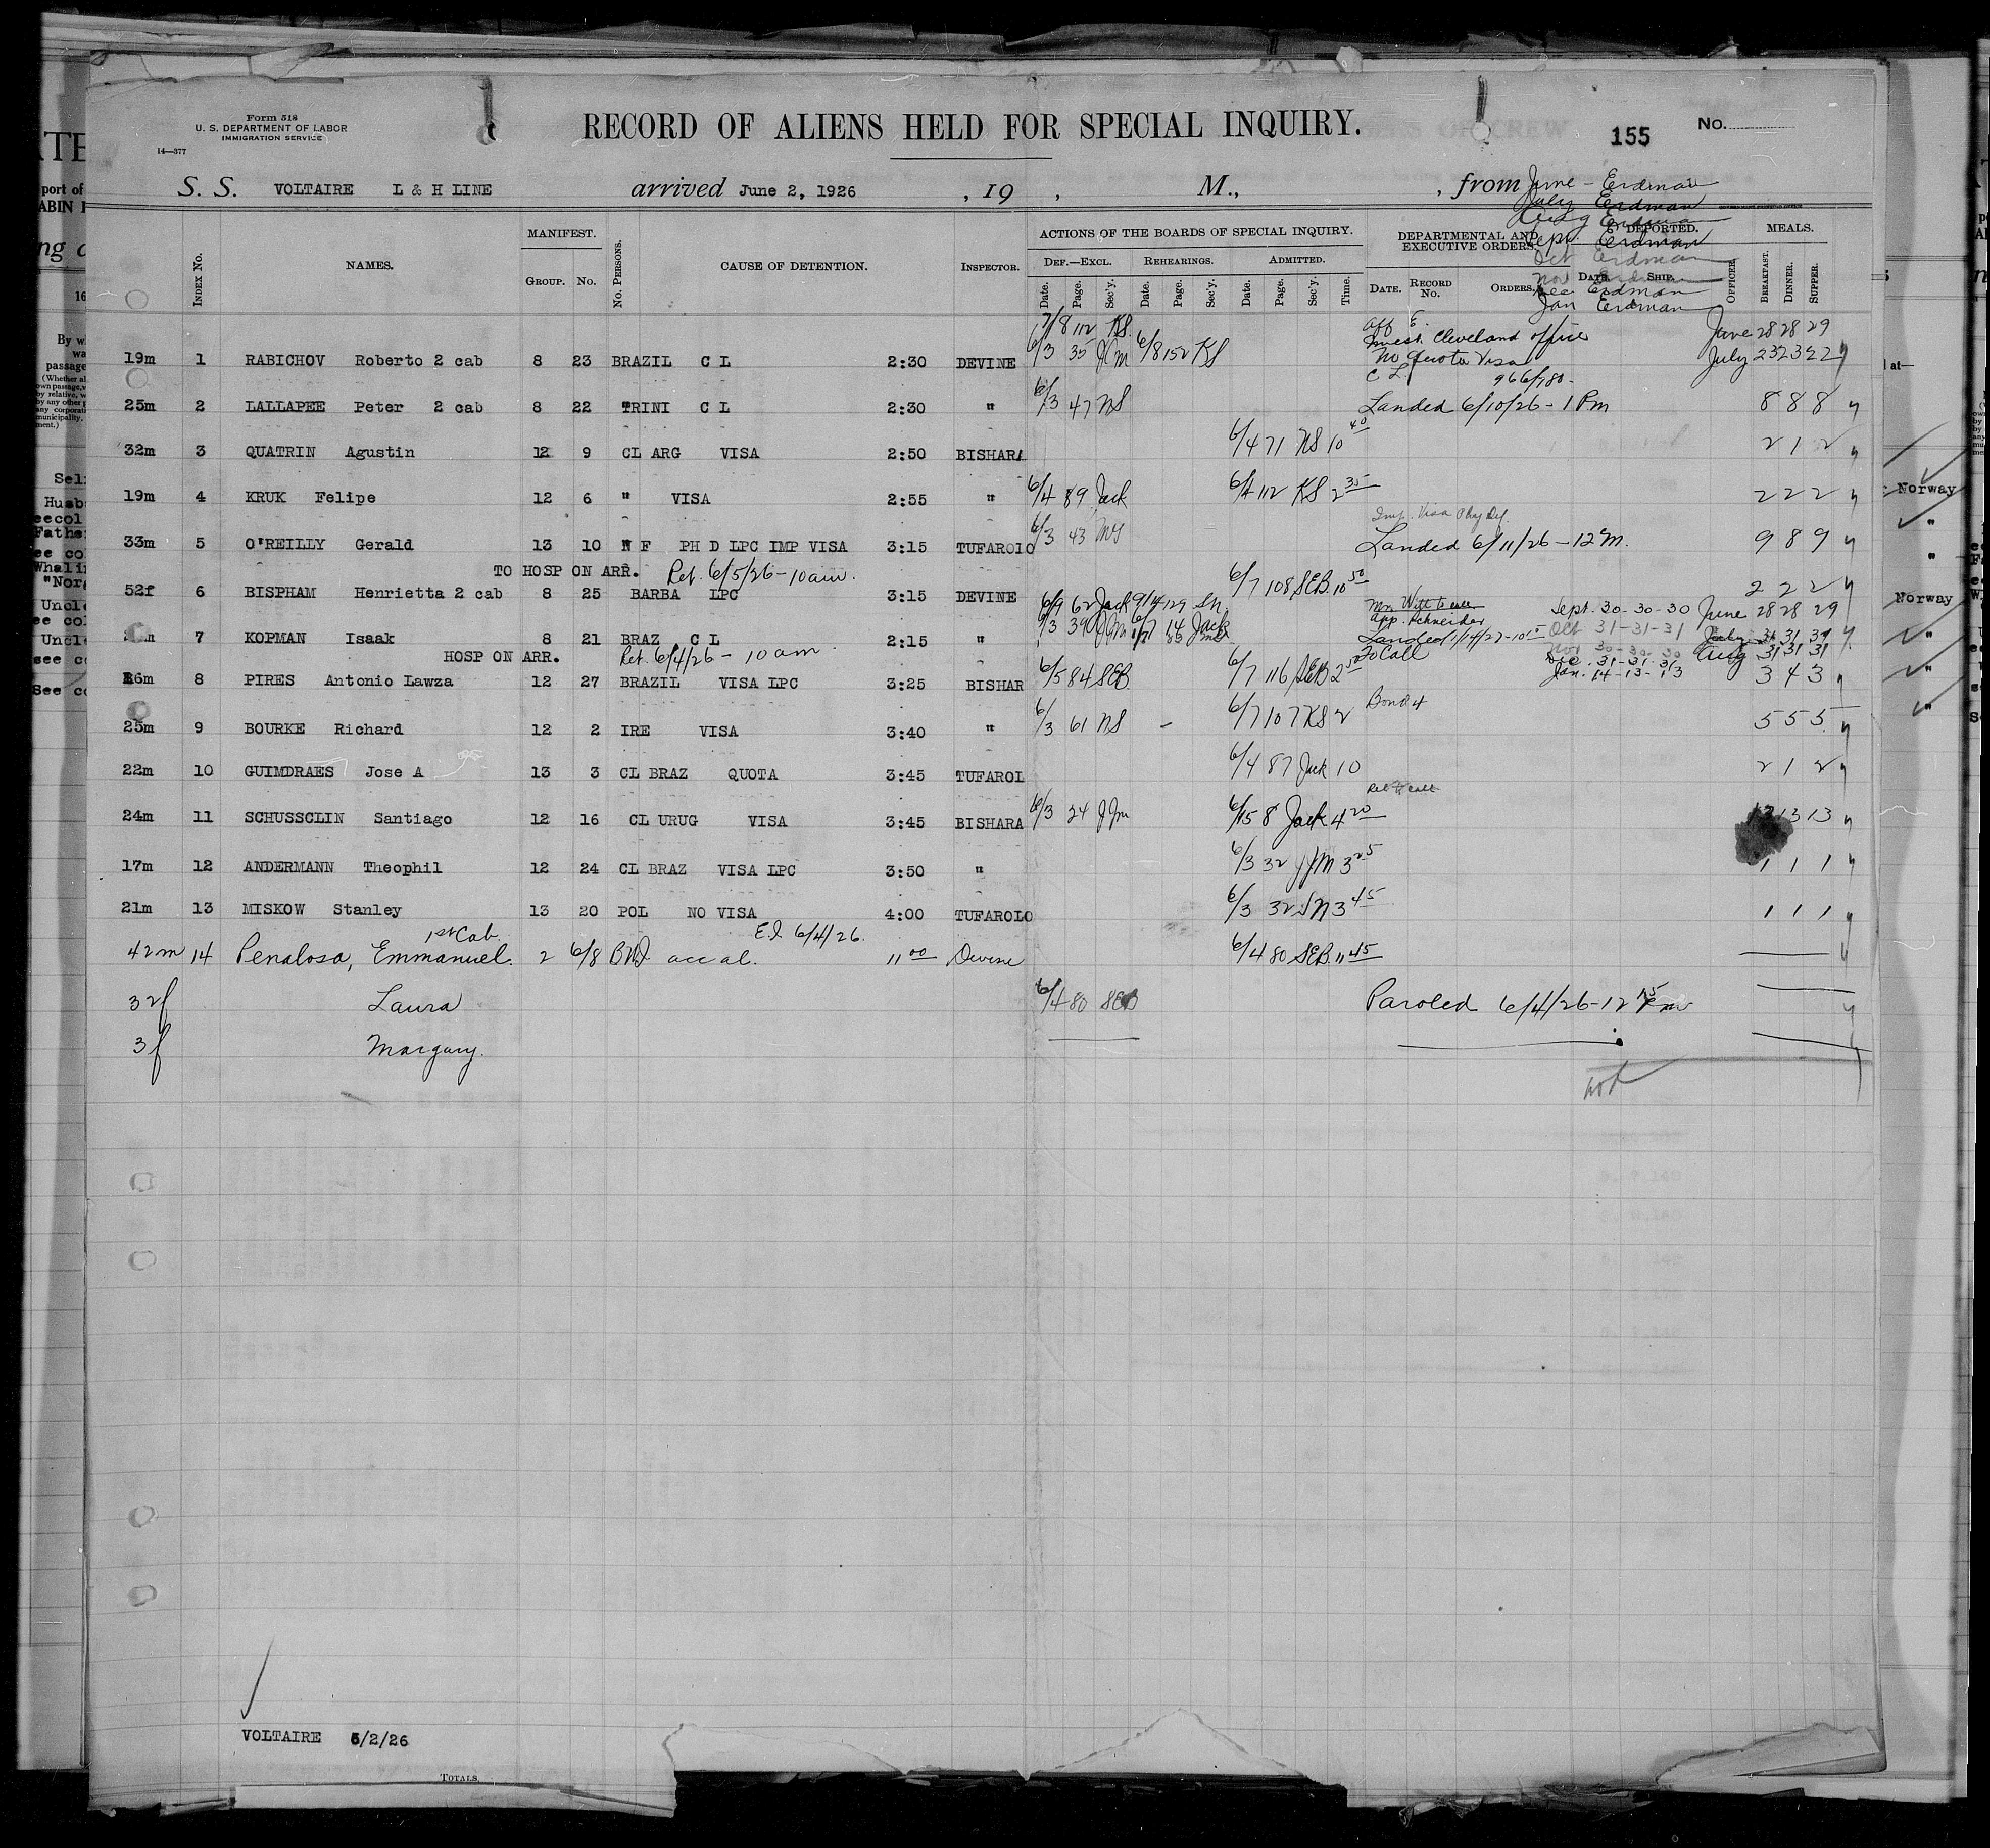 Form 518
U. S. DEPARTMENT OF LABOR
IMMIGRATION SERVICE
14—377
RECORD OF ALIENS HELD FOR SPECIAL INQUIRY.
155 No.
S. S. VOLTAIRE L & H LINE arrived June 2, 1926 , 19 , M., , from June - Erdman
July Erdman
Aug Erdman
Sept. Erdman
Oct Erdman
Nov Erdman
Dec Erdman
Jan Erdman
INDEX No. NAMES. MANIFEST. GROUP. No. No. PERSONS. CAUSE OF DETENTION. INSPECTOR.
ACTIONS OF THE BOARDS OF SPECIAL INQUIRY.
DEF.—EXCL. REHEARINGS. ADMITTED.
Date. Page. Sec'y. Date. Page. Sec'y. Date. Page. Sec'y. Time.
DEPARTMENTAL AND EXECUTIVE ORDERS. DATE. RECORD No. ORDERS.
DEPORTED. DATE. SHIP. OFFICER.
MEALS. BREAKFAST. DINNER. SUPPER.
7/8 112 KS. aff E.
Invest. Cleveland office June 28 28 29
19m 1 RABICHOV Roberto 2 cab 8 23 BRAZIL C L 2:30 DEVINE 6/3 35 JJM 6/8 152 KS No Quota Visa July 23 23 22
C L. 966/780-
25m 2 LALLAPEE Peter 2 cab 8 22 TRINI C L 2:30 " 6/3 47 NS Landed 6/10/26 - 1 Pm 8 8 8
32m 3 QUATRIN Agustin 12 9 CL ARG VISA 2:50 BISHARA 6/4 71 NS 10 40 2 1 2
19m 4 KRUK Felipe 12 6 " VISA 2:55 " 6/4 89 Jack 6/4 112 KS 2 35 2 2 2
Imp. Visa Phy Def.
33m 5 O'REILLY Gerald 13 10 N F PH D LPC IMP VISA 3:15 TUFAROLO 6/3 43 NS Landed 6/11/26 - 12 M. 9 8 9
TO HOSP ON ARR. Ret. 6/5/26 - 10 am.
52f 6 BISPHAM Henrietta 2 cab 8 25 BARBA LPC 3:15 DEVINE 6/7 108 SEB 10 50 2 2 2
6/9 62 Jack 9/14 129 SN. Mr. Witt to call Sept. 30-30-30 June 28 28 29
App. Schneider
7 KOPMAN Isaak 8 21 BRAZ C L 2:15 " 6/3 39 JJM 6/7 14 Jack Landed 1/14/27 - 10 Oct 31-31-31 July 31 31 31
HOSP ON ARR. Ret. 6/4/26 - 10 am. To Call Nov 30-30-30 Aug 31 31 31
Dec. 31-31-31
Jan. 14-13-13
8 PIRES Antonio Lawza 12 27 BRAZIL VISA LPC 3:25 BISHAR 6/5 84 SEB 6/7 116 SEB 2 50 3 4 3
25m 9 BOURKE Richard 12 2 IRE VISA 3:40 " 6/3 61 NS - 6/7 107 KS 2 Bond 4 5 5 5
22m 10 GUIMDRAES Jose A 13 3 CL BRAZ QUOTA 3:45 TUFAROL 6/4 87 Jack 10 2 1 2
Rel to call
24m 11 SCHUSSCLIN Santiago 12 16 CL URUG VISA 3:45 BISHARA 6/3 24 JJM 6/15 8 Jack 4 20 13 13 13
17m 12 ANDERMANN Theophil 12 24 CL BRAZ VISA LPC 3:50 " 6/3 32 JJM 3 25 1 1 1
21m 13 MISKOW Stanley 13 20 POL NO VISA 4:00 TUFAROLO 6/3 32 SN 3 45 1 1 1
1st Cab. E.I. 6/4/26.
42m 14 Penalosa, Emmanuel. 2 6/8 BWI acc al. 11 00 Devine 6/4 80 SEB 11 45
32f Laura 6/4 80 SEB Paroled 6/4/26 - 12 15 Pm
3f Margary.
VOLTAIRE 6/2/26
TOTALS
Norway
"
"
Norway
"
"
"